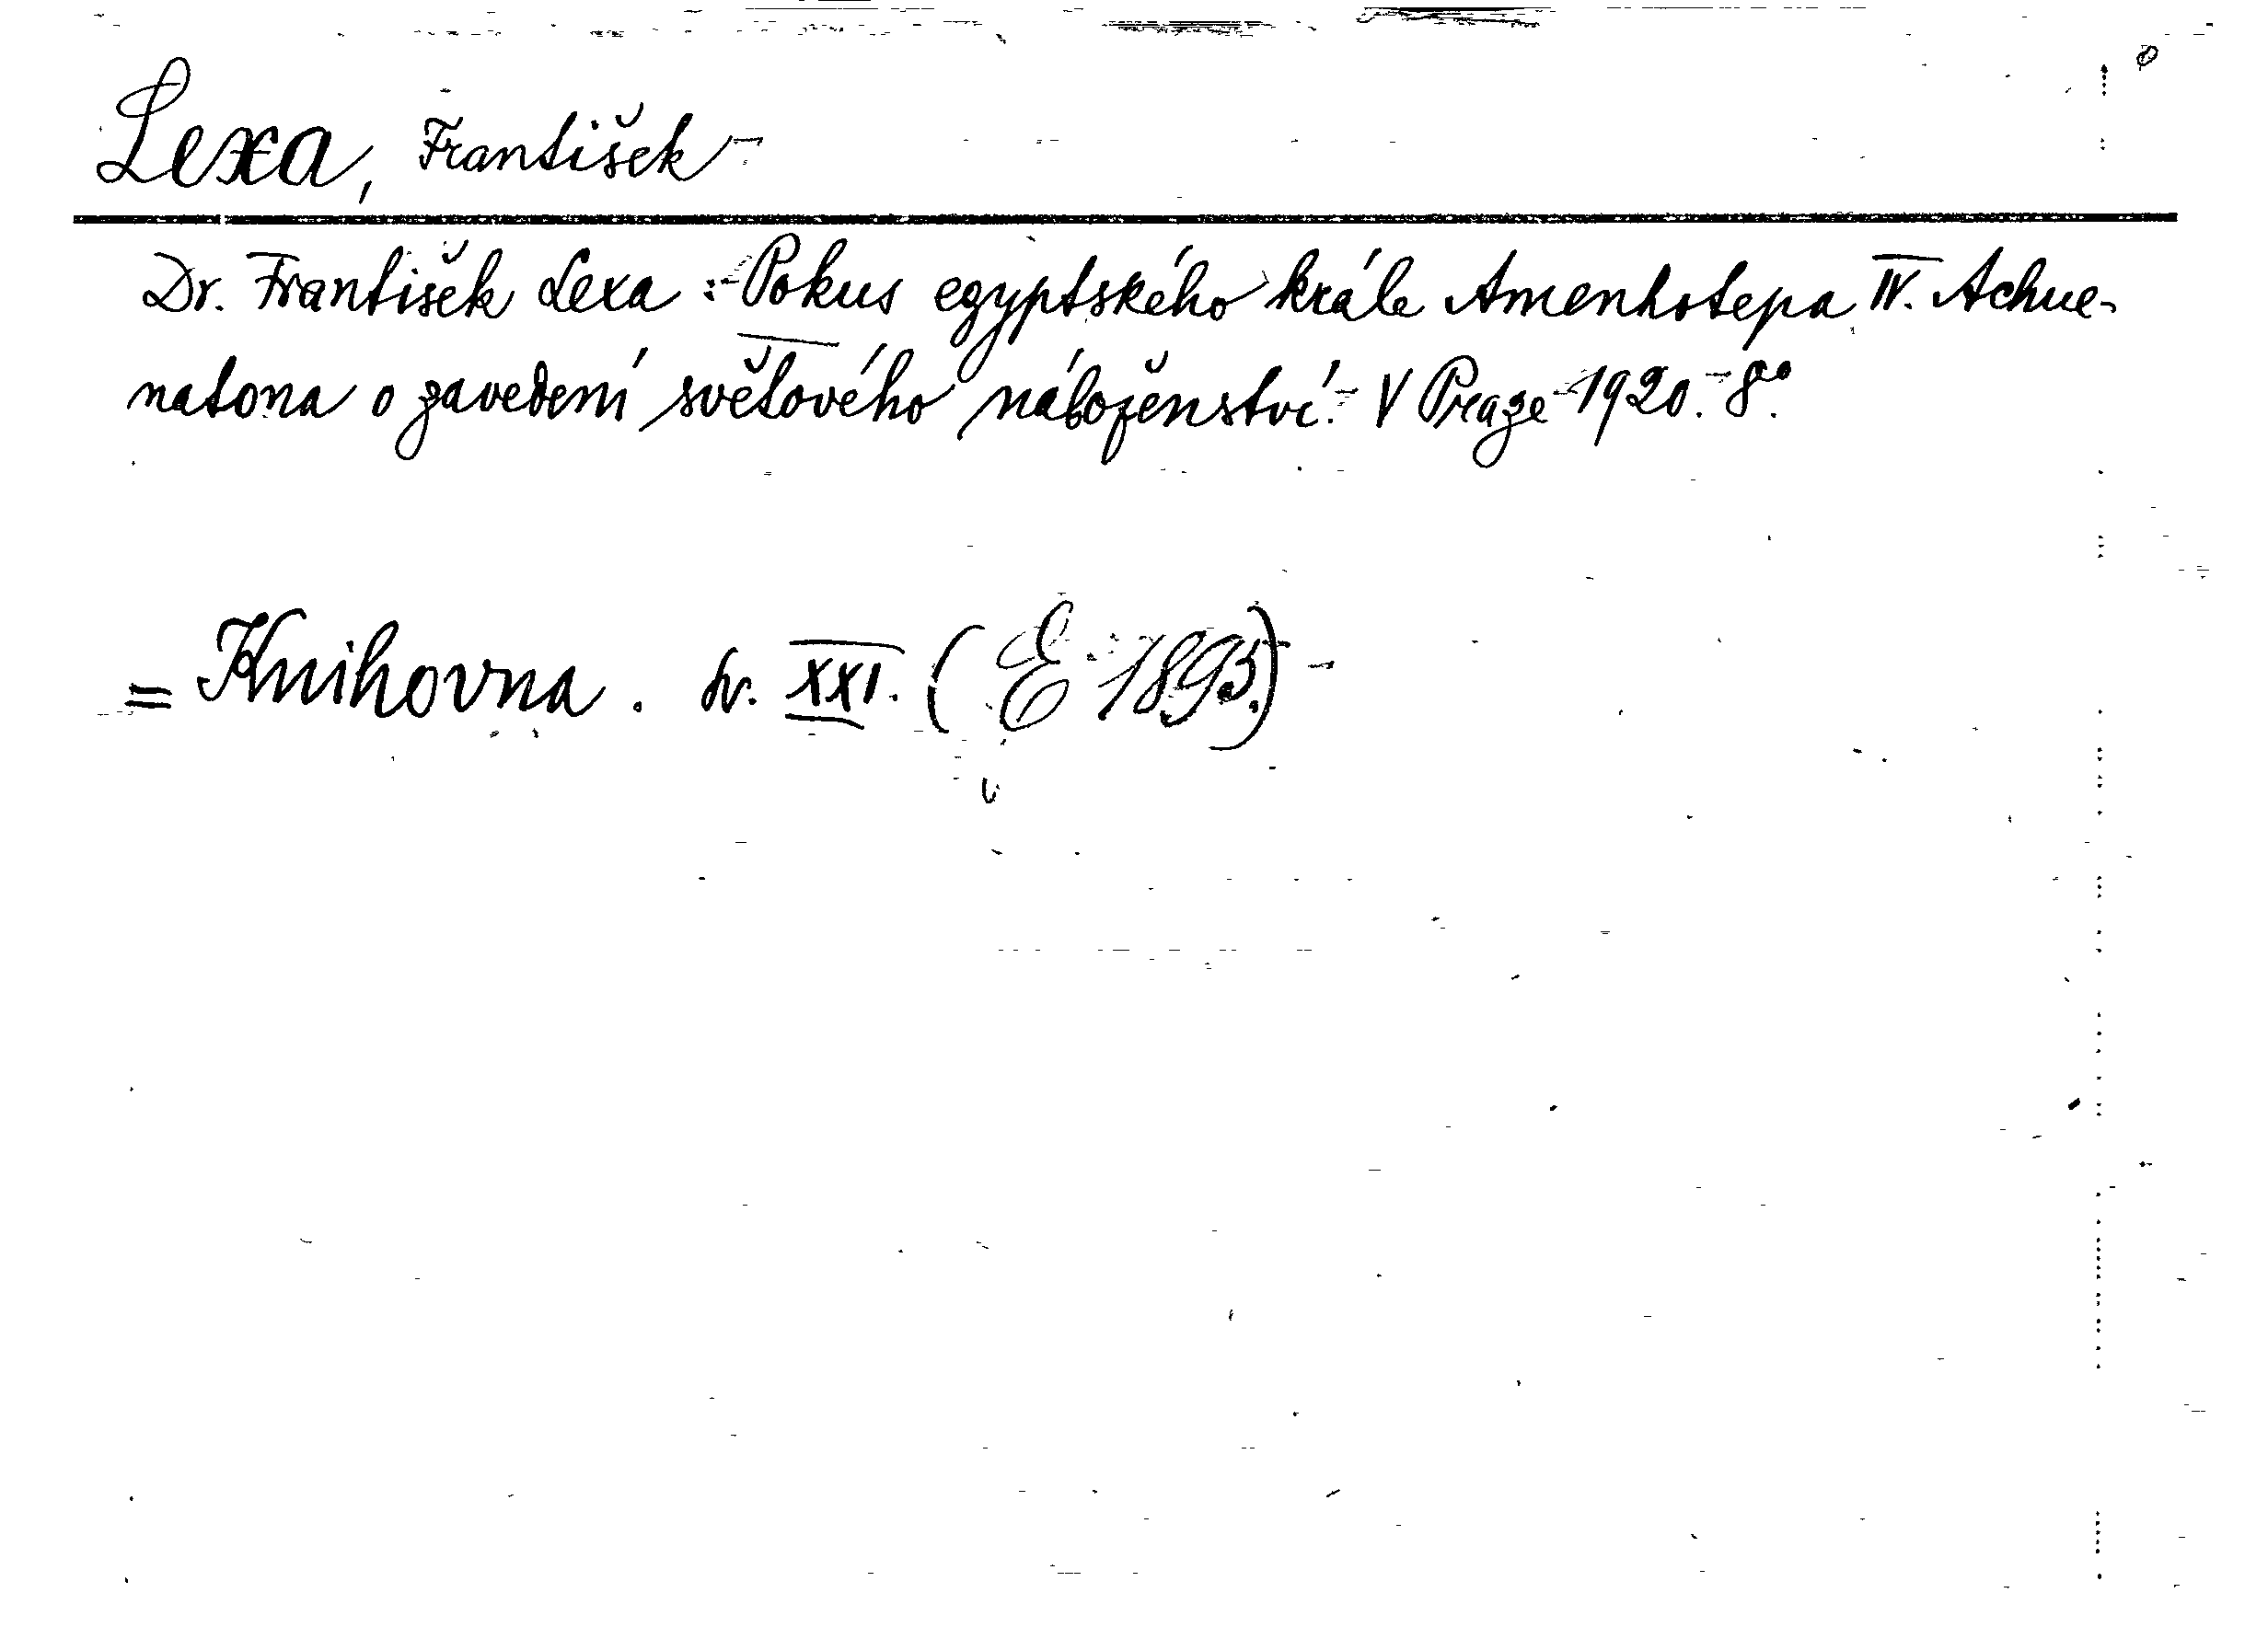 Lexa, František
Dr. František Lexa : Pokus egyptského krále Amenhotepa IV. Achue-
natona o zavedení světového náboženství. V Praze 1920. 8°.
= Knihovna. sv. XXI. (E 1895)